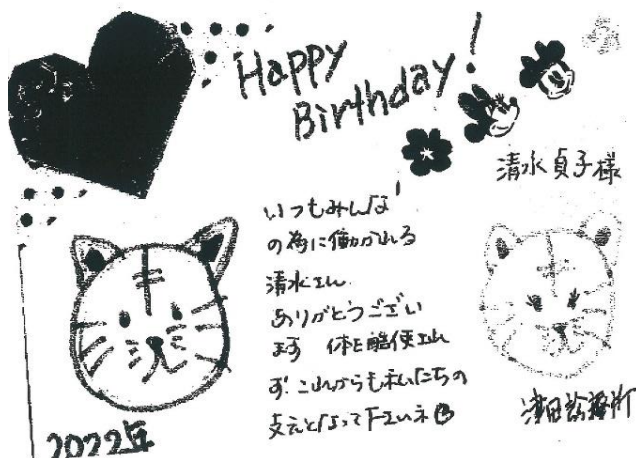 Happy
Birthday!
清水貞子様
いつもみんな
の為に働かれる
清水さん
ありがとうござい
ます 体を酷使され
ず、これからも私たちの
支えとなって下さいネ
2022年
濱田診療所